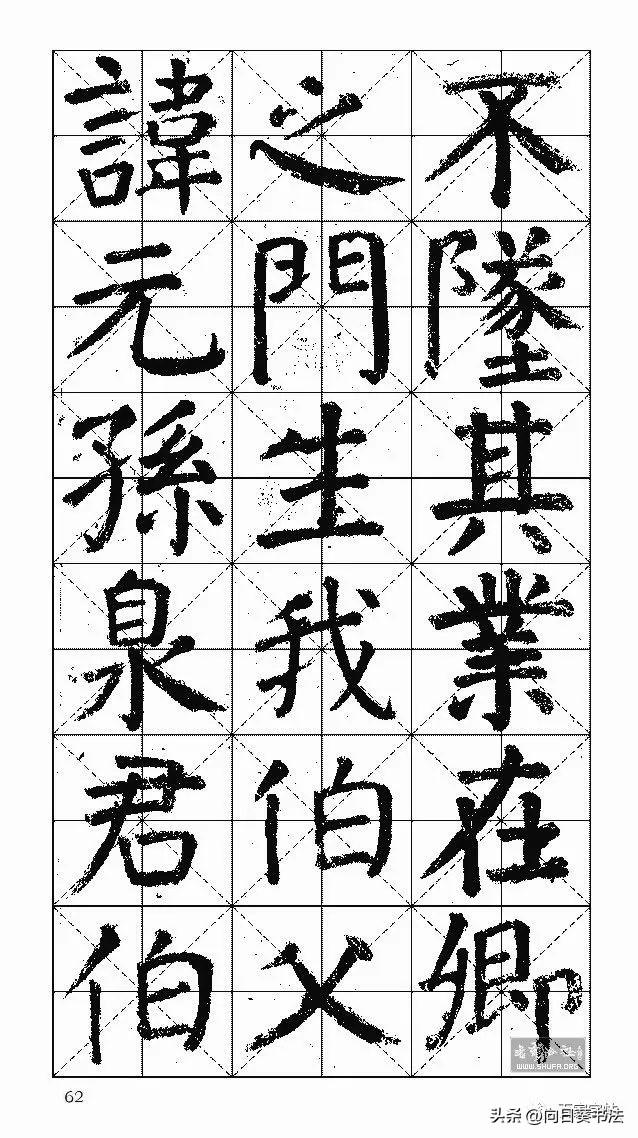 不墜其業在卿
之門生我伯父
諱元孫泉君伯
62
WWW.SHUFA.ORG
头条 @向日葵书法